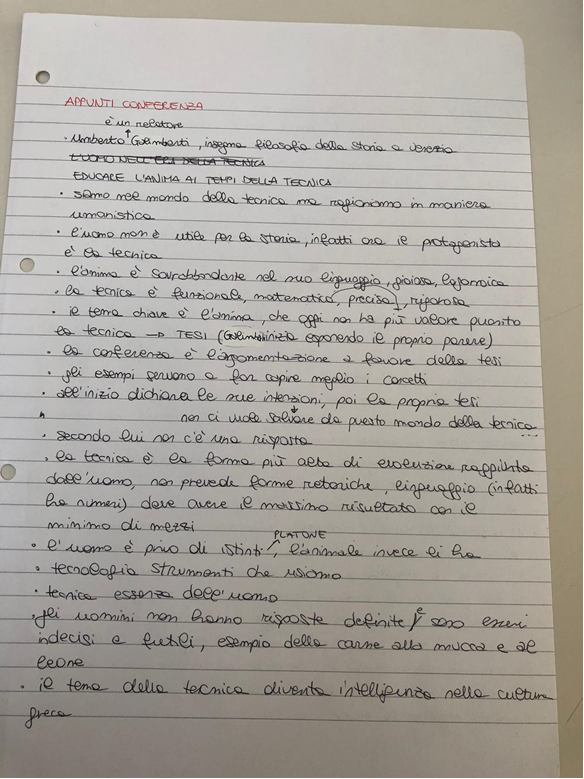 APPUNTI CONFERENZA
è un relatore
• Umberto Galimberti, insegna filosofia della storia a venezia
L'UOMO NELL'ERA DELLA TECNICA
EDUCARE L'ANIMA AI TEMPI DELLA TECNICA
• siamo nel mondo della tecnica ma ragioniamo in maniera
umanistica
• l'uomo non è utile per la storia, infatti ora il protagonista
è la tecnica
• l'anima è sovrabbondante nel suo linguaggio, gioiosa,
• la tecnica è funzionale, matematica, precisa, rigorosa
• il tema chiave è l'anima, che oggi non ha più valore quanto
la tecnica → TESI (Galimberti inizia esponendo il proprio parere)
• la conferenza è l'argomentazione a favore della tesi
• gli esempi servono a far capire meglio i concetti
• all'inizio dichiara le sue intenzioni, poi la propria tesi
" non ci vuole salvare da questo mondo della tecnica
• secondo lui non c'è una risposta
• la tecnica è la forma più alta di evoluzione raggiunta
dall'uomo, non prevede forme retoriche, linguaggio (infatti
ha numeri) deve avere il massimo risultato con il
minimo di mezzi
PLATONE
• l'uomo è privo di istinti, l'animale invece li ha
• tecnologia strumenti che usiamo
• tecnica essenza dell'uomo
• gli uomini non hanno risposte definite e sono esseri
indecisi e futili, esempio della carne alla mucca e al
leone
• il tema della tecnica diventa intelligenza nella cultura
greca